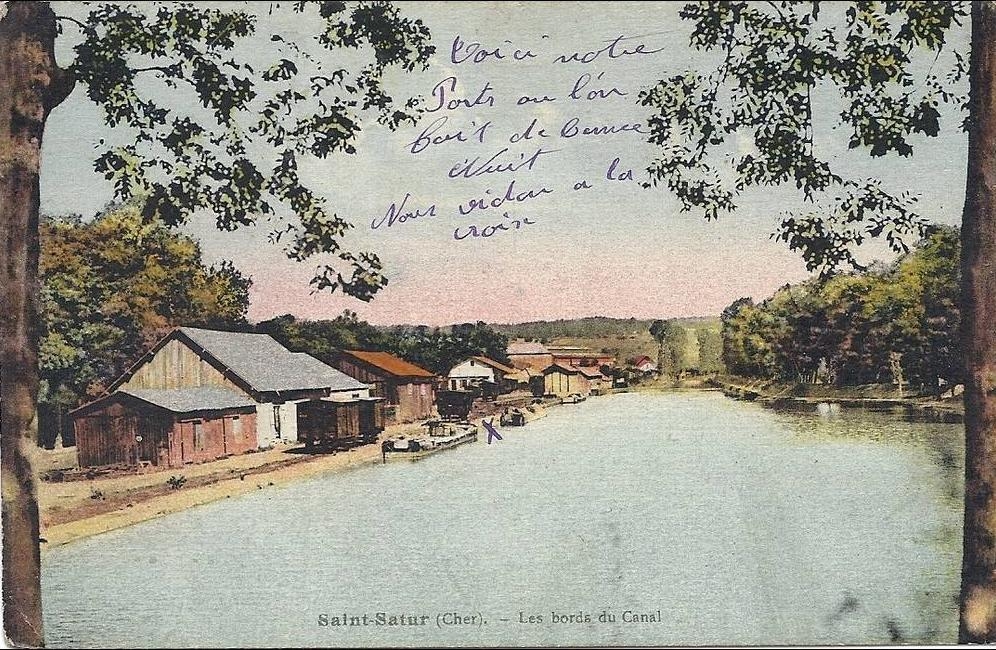 Voici notre
Ports ou l'on
fait de
Nuit
Nous vidon a la
croix
X
Saint-Satur (Cher). - Les bords du Canal